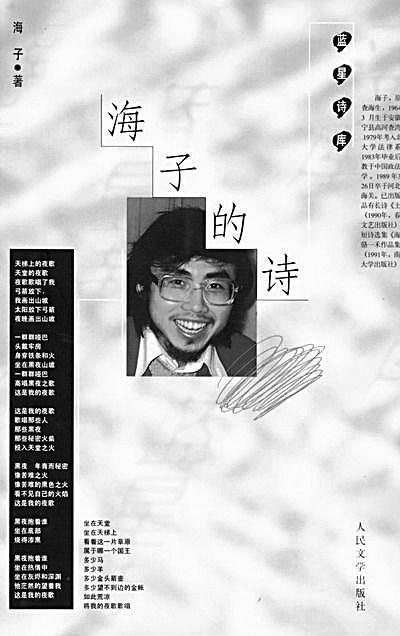 海子●著
蓝星诗库
海子的诗
海子，原
查海生，1964
3 月生于安徽
宁县高河查湾
1979年考入
大学法律系
1983年毕业后
教于中国政法
学。1989年
26日卒于河北
海关。已出版
品有长诗《土
（1990年，春
文艺出版社）
短诗选集《海
骆一禾作品集
（1991年，南
大学出版社）
天梯上的夜歌
天堂的夜歌
夜歌歌唱了我
弓箭放下，
我画出山坡
太阳放下弓箭
夜晚画出山坡
一群群哑巴
头戴牢房
身穿铁条和火
坐在黑夜山坡
一群群哑巴
高唱黑夜之歌
这是我的夜歌
这是我的夜歌
歌唱那些人
那些黑夜
那些秘密火柴
投入天堂之火
黑夜 年青而秘密
像苦难之火
像苦难的黑色之火
看不见自己的火焰
这是我的夜歌
黑夜抱着谁
坐在底部
烧得漆黑
黑夜抱着谁
坐在热情中
坐在灰烬和深渊
他茫然的望着我
这是我的夜歌
坐在天堂
坐在天梯上
看着这一片草原
属于哪一个国王
多少马
多少羊
多少金头箭壶
多少望不到边的金帐
如此荒凉
将我的夜歌歌唱
人民文学出版社